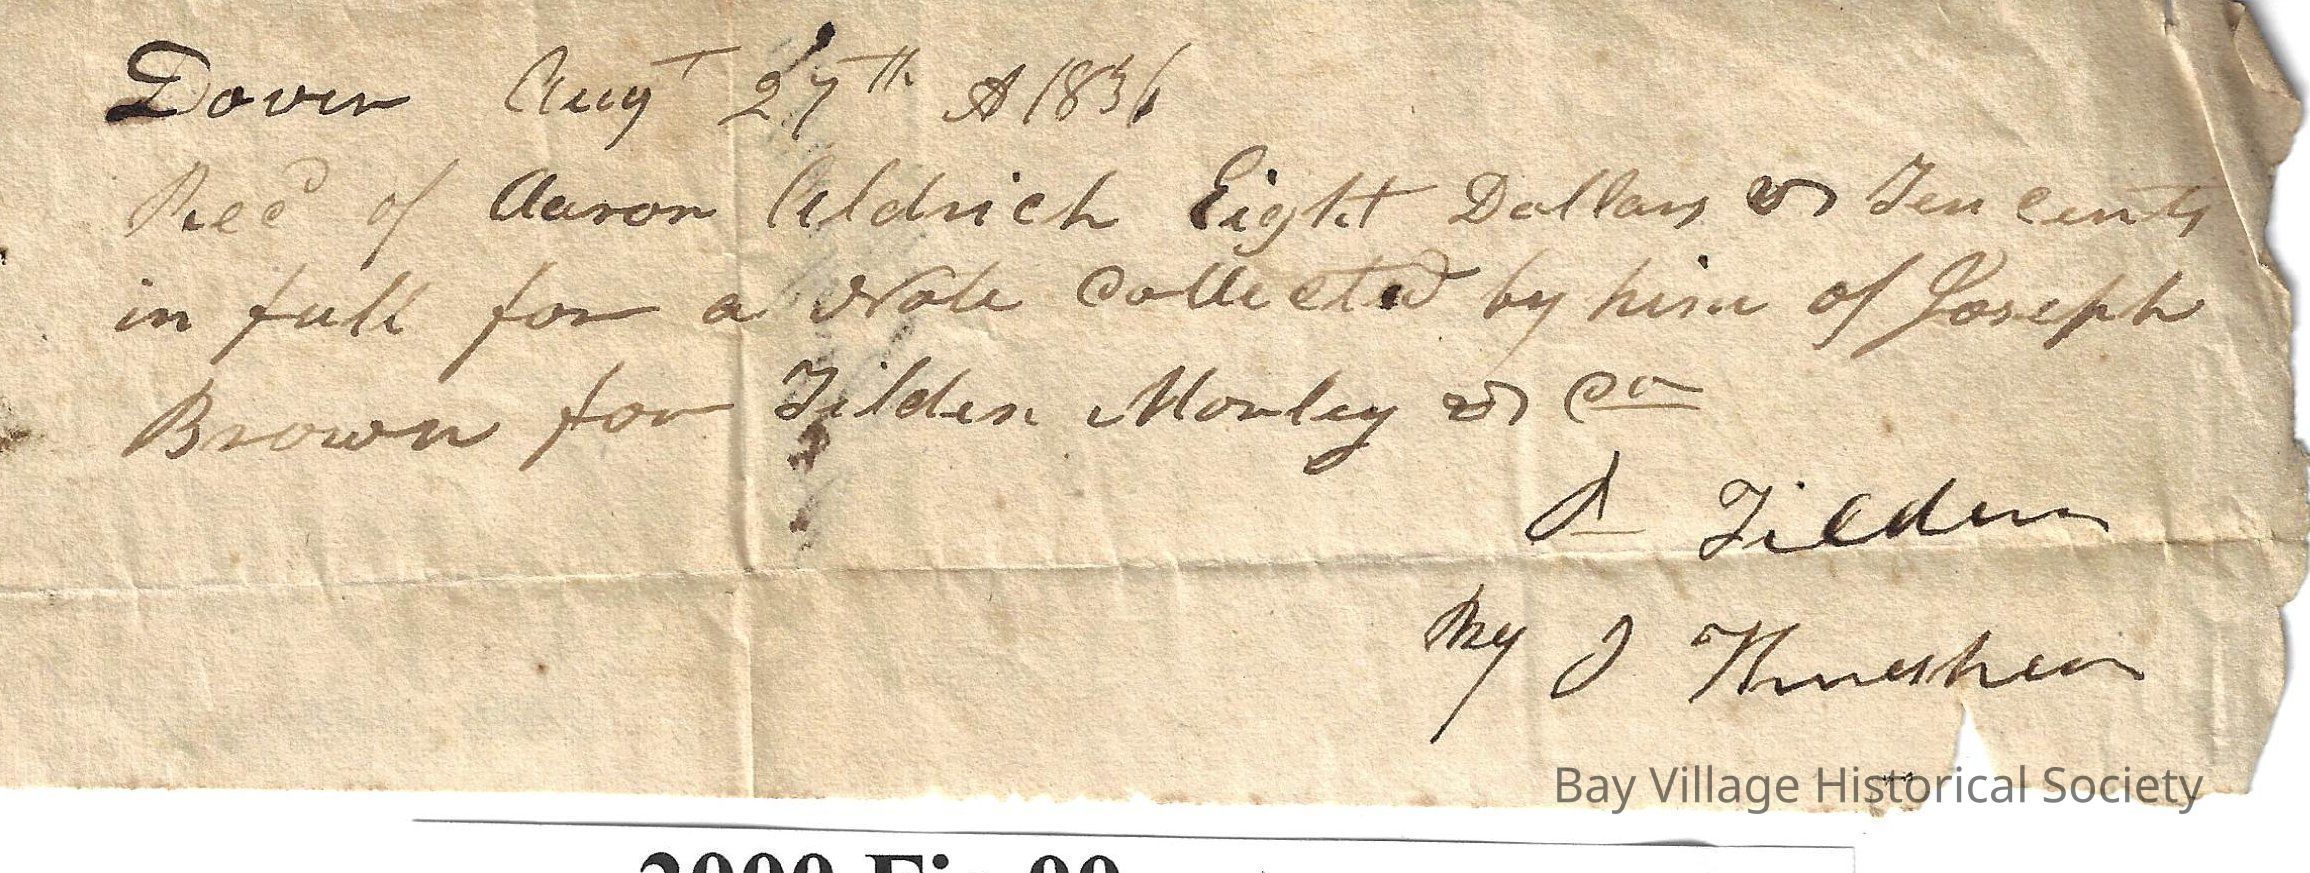 Dover Augt 27th A 1836
Recd of Aaron Aldrich Eight Dollars & Ten cents
in full for a Note Collected by him of Joseph
Brown for Tilden Morley & Co
D Tilden
By J
Bay Village Historical Society